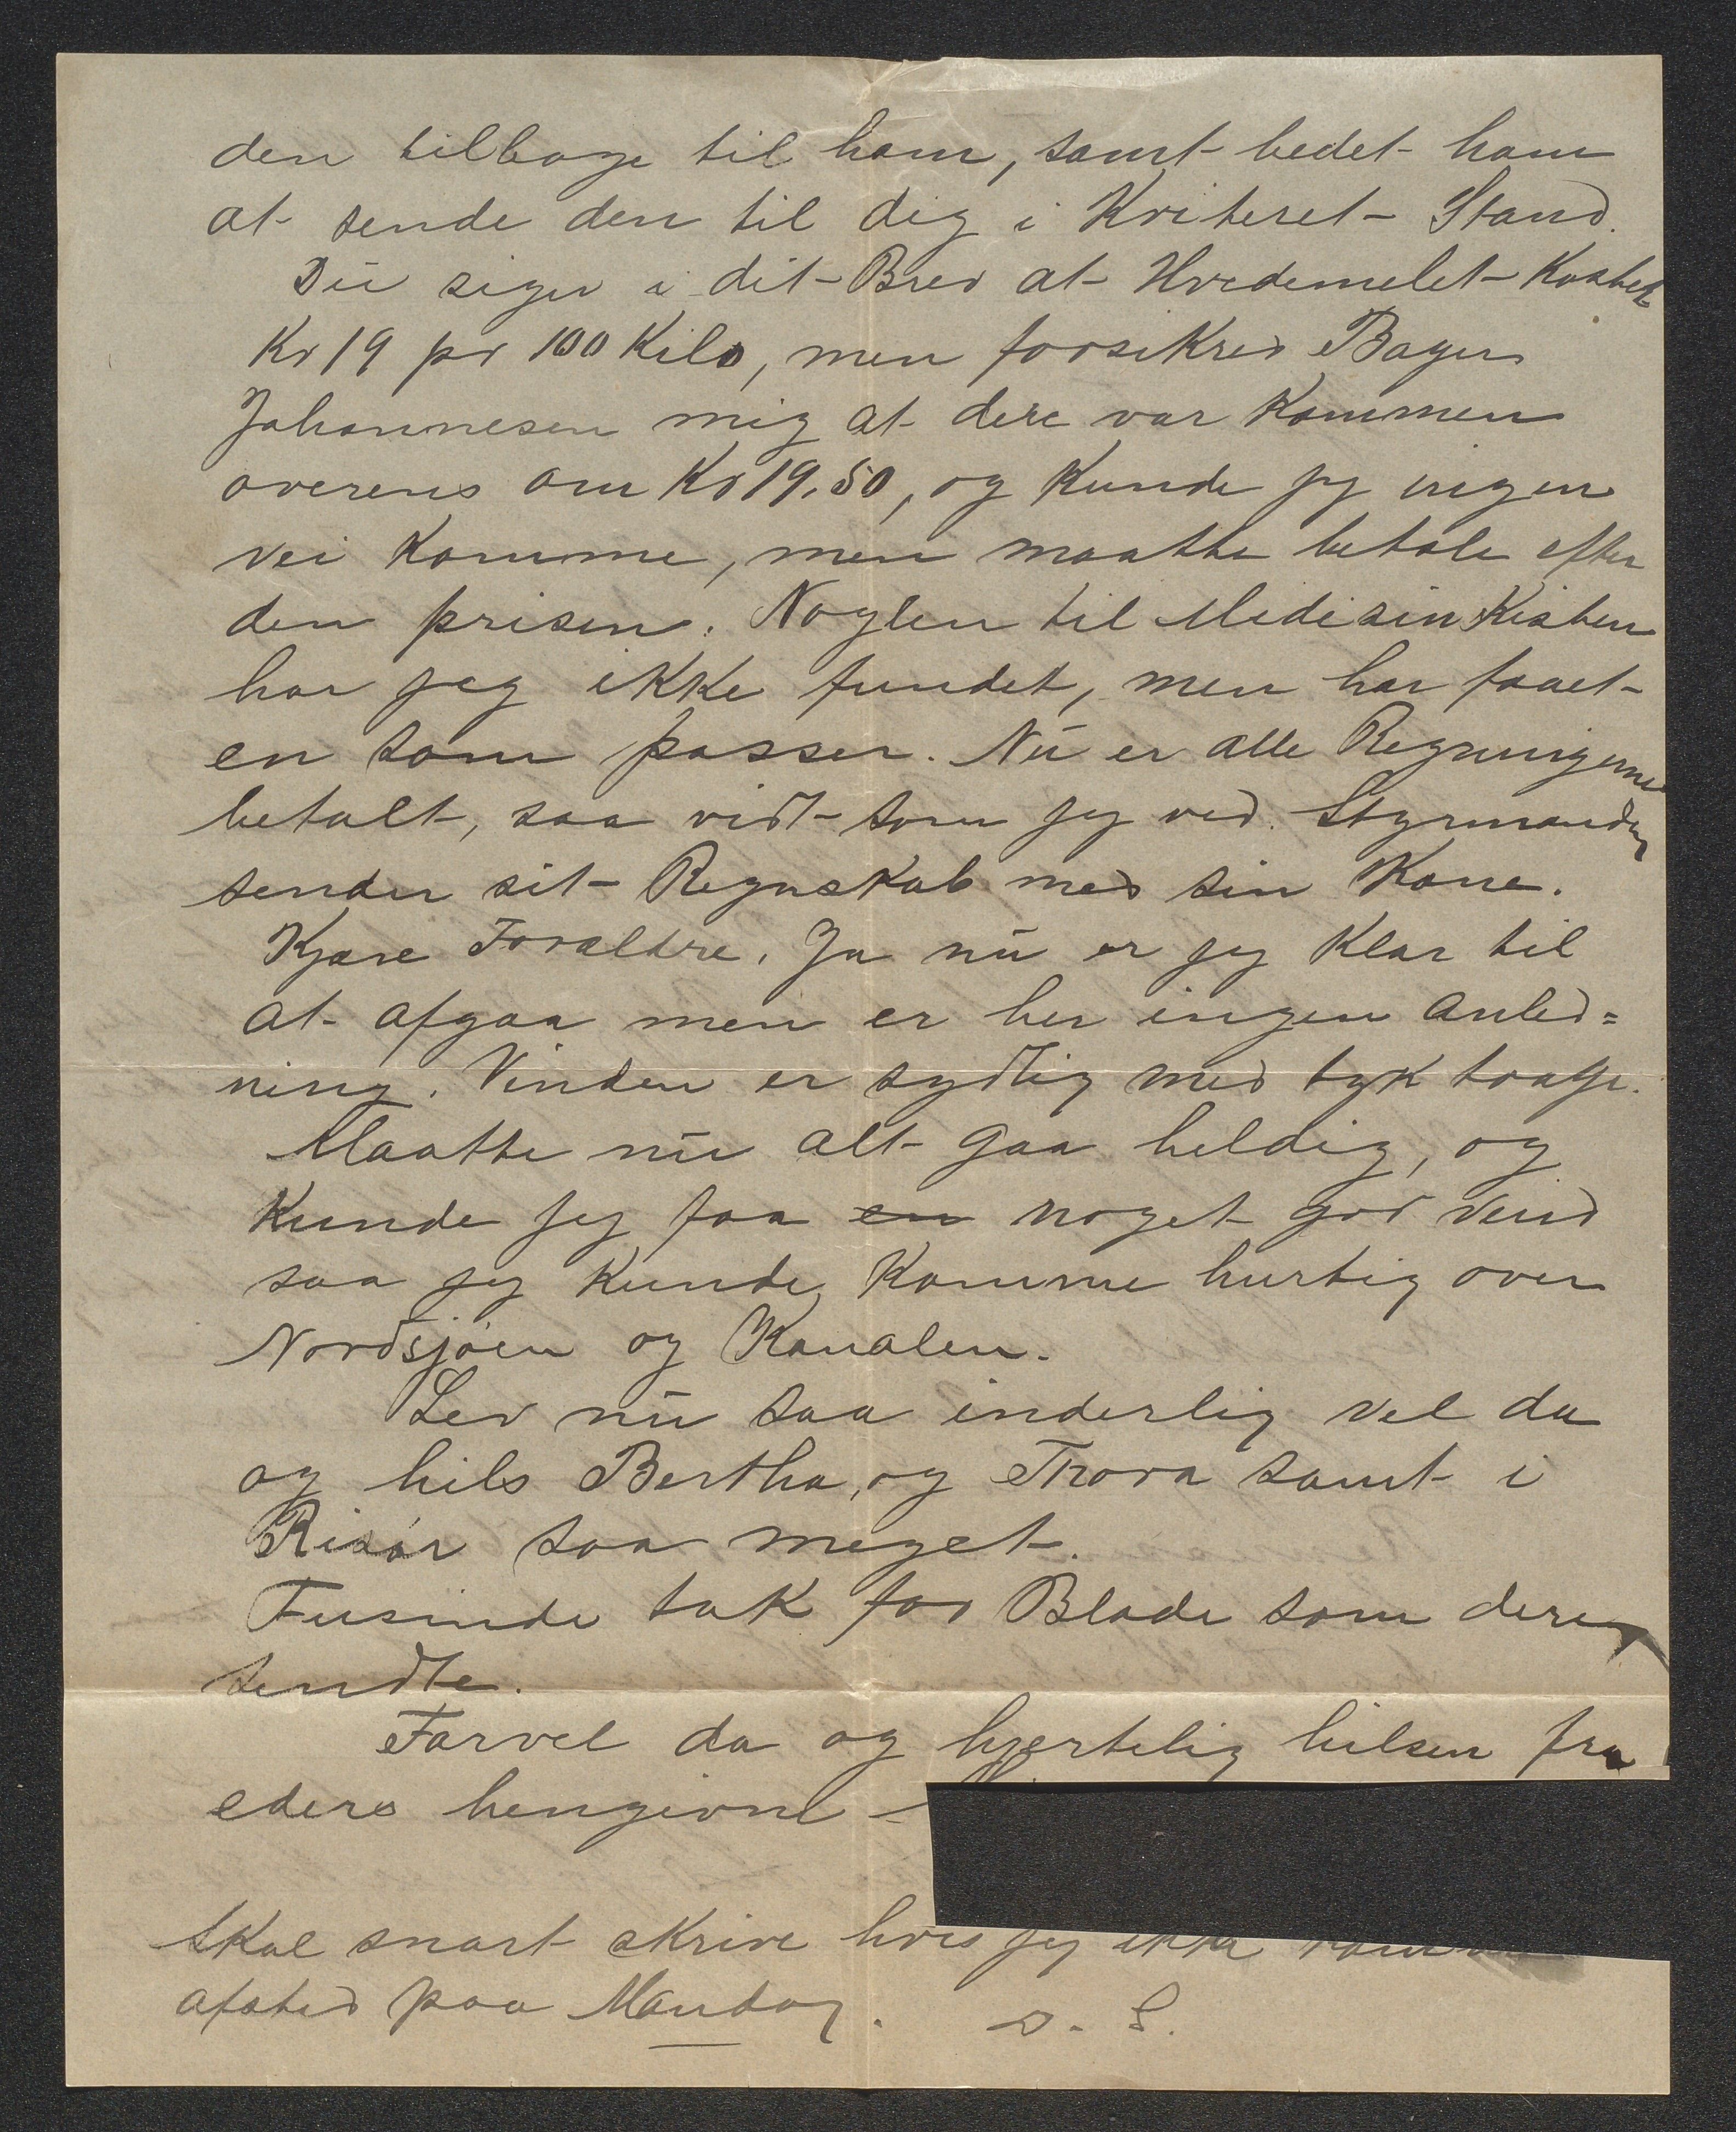 den tilbage til ham, samt bedet ham
at sende den til dig i Kviteret Stand.
Du siger i dit Brev at Hvedemelet Kostet
Kr 19 pr 100 Kilo, men forsikred Bager
Johannesen mig at dere var Kommen
overens om Kr 19,50, og Kunde jeg ingen
vei Komme, men maatte betale efter
den prisen. Nøglen til Medisin Kisten
har jeg ikke fundet, men har faaet
en som passer. Nu er alle Regningerne
betalt, saa vidt som jeg ved. Styrmanden
sender sit Regnskab med sin Kone.
Kjære Forældre. Ja nu er jeg Klar til
at afgaa men er her ingen anled=
ning. Vinden er sydlig med tyk taage.
Maatte nu alt gaa heldig, og
Kunde jeg faa en noget god Vind
saa jeg Kunde Komme hurtig over
Nordsjøen og Kanalen.
Lev nu saa inderlig vel da
og hils Bertha, og Thora samt i
Risør saa meget.
Tusinde tak for Blade som dere
sendte.
Farvel da og hjertelig hilsen fra
eders hengivne
Skal snart skrive hvis jeg ikke
afsted paa Mandag. D. S.